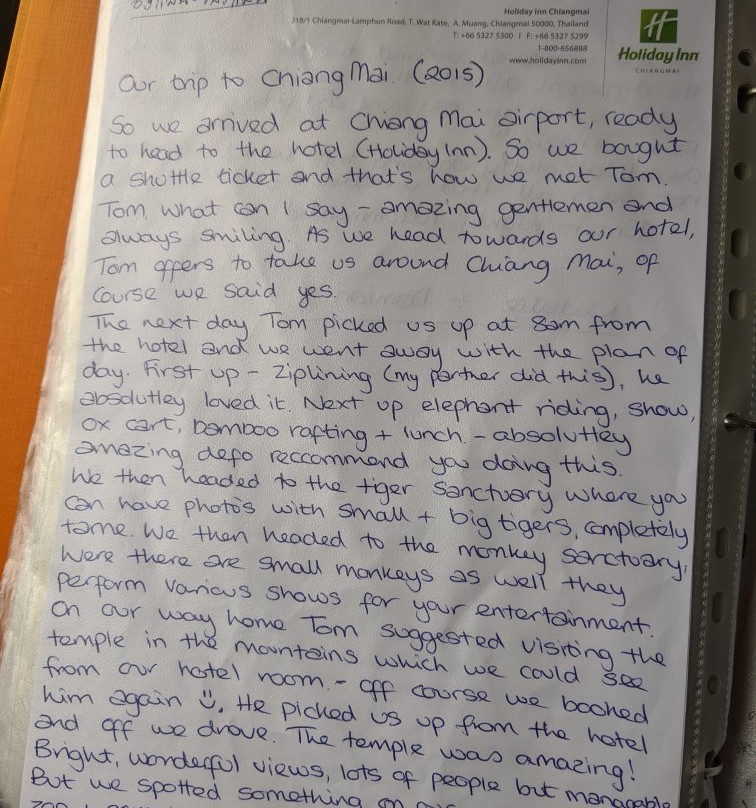 Holiday Inn Chiangmai
318/1 Chiangmai-Lamphun Road, T. Wat Kate, A. Muang, Chiangmai 50000, Thailand
T: +66 5327 5300 | F: +66 5327 5299
1-800-656888
www.holidayinn.com
H
Holiday Inn
CHIANGMAI
Our trip to Chiang Mai (2015)
So we arrived at Chiang Mai airport, ready
to head to the hotel (Holiday Inn). So we bought
a shuttle ticket and that's how we met Tom.
Tom, what can I say - amazing gentlemen and
always smiling. As we head towards our hotel,
Tom offers to take us around Chiang Mai, of
course we said yes.
The next day Tom picked us up at 8am from
the hotel and we went away with the plan of
day. First up - Ziplining (my partner did this), he
absolutley loved it. Next up elephant riding, show,
ox cart, bamboo rafting + lunch. - absolutley
amazing defo reccommend you doing this.
We then headed to the tiger Sanctuary where you
can have photo's with small + big tigers, completely
tame. We then headed to the monkey sanctuary,
were there are small monkeys as well they
perform various shows for your entertainment.
On our way home Tom suggested visiting the
temple in the mountains which we could see
from our hotel room. - off course we booked
him again :), He picked us up from the hotel
and off we drove. The temple was amazing!
Bright, wonderful views, lots of people but managable
But we spotted something on